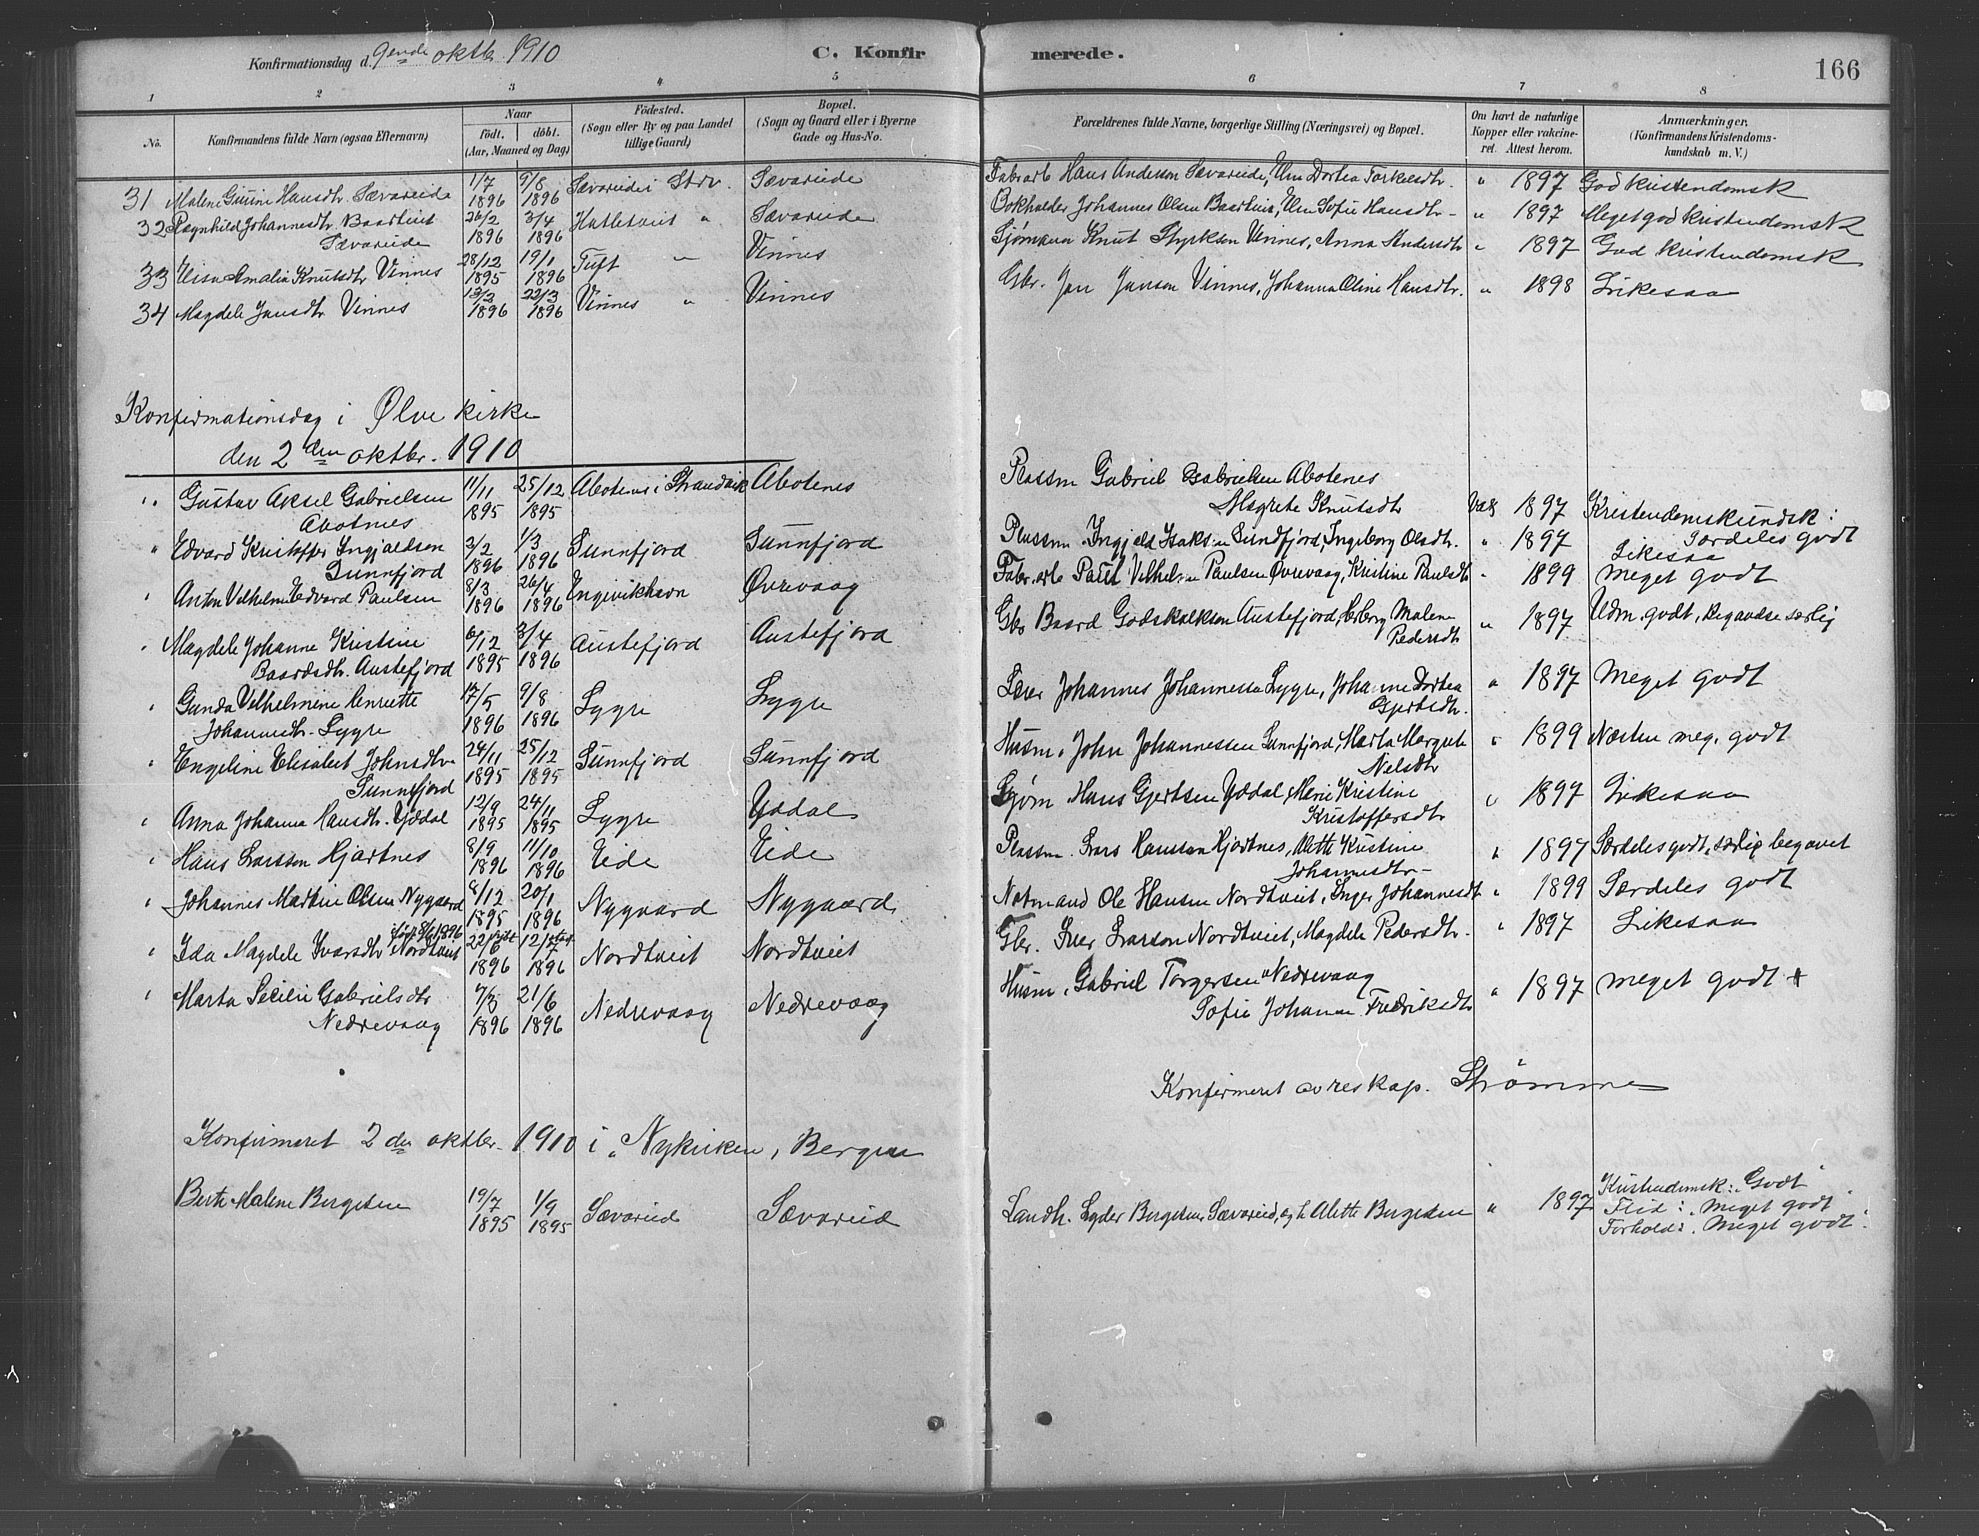 Konfirmationsdag d. 9ende oktb. 1910
C. Konfirmerede.
166
1 2 3 4 5 6 7 8
No. Konfirmandens fulde Navn (ogsaa Efternavn) Naar født. døbt. (Aar, Maaned og Dag) Fødested. (Sogn eller By og paa Landet tillige Gaard) Bopæl. (Sogn og Gaard eller i Byerne Gade og Hus-No. Forældrenes fulde Navne, borgerlige Stilling (Næringsvei) og Bopæl. Om havt de naturlige Kopper eller vakcineret. Attest herom. Anmærkninger. (Konfirmandens Kristendomskundskab m. V.)
31 Malene Gurine Hansdtr. Sævareide 1/7 1896 9/8 1896 Sævareide i Strv. Sævareide Fabr.arb Hans Anderson Sævareide, Dortea Torkelsdtr. " 1897 God kristendomsk
32 Ragnhild Johannesdtr. Baardtveit Sævareide 26/2 1896 3/4 1896 Hatletveit " Sævareide Bokholder Johannes Olsen Sofie Hansdtr " 1897 Meget god kristendomsk
33 Elisa Amalia Knutsdtr Vinnes 28/12 1895 19/1 1896 Tuft " Vinnes Sjømann Knut Styrksen Vinnes, Anna Andersdtr " 1897 God kristendomsk
34 Magdele Jansdtr Vinnes 13/3 1896 22/3 1896 Vinnes " Vinnes Gbr. Jan Janson Vinnes, Johanna Oline Hansdtr. " 1898 Likesaa
Konfirmationsdag i Ølve kirke
den 2den oktbr. 1910
" Gustav Aksel Gabrielsen Abotnes 11/11 1895 25/12 1895 Abotenes i Strandvik Abotenes Plassm Gabriel Gabrielsen Abotenes Magrete Knutsdtr Vac 1897 Kristendomskundsk: Særdeles godt
" Edvard Kristoffer Ingjaldsen Sunnfjord 2/2 1896 1/3 1896 Sunnfjord Sunnfjord Plassm. Ingjeld Isaksen Sundfjord, Ingeborg Olsdtr. " 1897 Likesaa
" Anton Vilhelm Edvard Paulsen 8/3 1896 26/4 1896 Engevikhavn Øvrevaag Fabr.arb Paul Vilhelm Paulsen Øvrevaag, Kristine Paulsdtr " 1899 Meget godt
" Magdele Johanne Kristine Baardsdtr. Austefjord 6/12 1895 3/4 1896 Austefjord Austefjord Gbr Baard Godskalksen Austefjord, Malene Pedersdtr " 1897 Udm. godt, særlig
" Gunda Vilhelmine Henriette Johannesdtr. Lygre 17/5 1896 9/8 1896 Lygre Lygre Johannes Johannessen Lygre, Johanne Dortea Gjertsdtr. " 1897 Meget godt
" Engeline Elisabet Johnsdtr Sunnfjord 24/11 1895 25/12 1895 Sunnfjord Sunnfjord Husm. John Johannessen Sunnfjord, Marta Margrete Nelsdtr " 1899 Næsten meg. godt
" Anna Johanna Hansdtr. Yddal 12/9 1895 24/11 1895 Lygre Yddal Sjøm Hans Gjertsen Yddal, Marie Kristine Kristoffersdtr " 1897 Likesaa
" Hans Larsson Hjartnes 8/9 1896 11/10 1896 Eide Eide Plassm. Lars Hansson Hjartnes, Kristine Johannesdtr " 1897 Særdeles godt, særlig begavet
" Johannes Martin Olsen Nygaard 8/12 1895 20/1 1896 Nygaard Nygaard Notmand Ole Hansen Nordtveit, Inger Johannesdtr " 1899 Særdeles godt
" Ida Magdele Ivarsdtr Nordtveit 22/6 1896 12/7 1896 Nordtveit Nordtveit Gbr. Iver Larson Nordtveit, Magdele Pedersdtr. " 1897 Likesaa
" Marta Secilie Gabrielsdtr Nedrevaag 1896 21/6 1896 Nedrevaag Nedrevaag Husm. Gabriel Torgersen Nedrevaag Sofie Johanne Fredriksdtr " 1897 Meget godt +
Konfirmeret av reskap. Strømme
Konfirmeret 2den oktbr. 1910 i "Nykirken, Bergen
Berte Malene Bergesen 19/7 1895 1/9 1895 Sævareid Sævareid Landh. Lyder Bergesen, Sævareid, og h. Alette Bergesen " 1897 Kristendomsk: "Godt" Flid: "Meget godt" Forhold: "Meget godt".